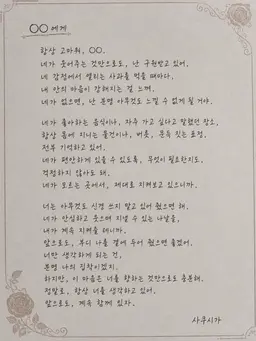 ○○에게
항상 고마워, ○○.
네가 웃어주는 것만으로도, 난 구원받고 있어.
네 감정에서 열리는 사과를 먹을 때마다,
네 안의 마음이 강해지는 걸 느껴.
네가 없으면, 난 분명 아무것도 느낄 수 없게 될 거야.
네가 좋아하는 음식이나, 자주 가고 싶다고 말했던 장소,
항상 몸에 지니는 물건이나, 버릇, 문득 짓는 표정.
전부 기억하고 있어.
네가 편안하게 있을 수 있도록, 무엇이 필요한지도.
걱정하지 않아도 돼.
네가 모르는 곳에서, 제대로 지켜보고 있으니까.
너는 아무것도 신경 쓰지 말고 있어 줬으면 해.
네가 안심하고 웃으며 지낼 수 있는 나날을,
내가 계속 지켜줄 테니까.
앞으로도, 부디 나를 곁에 두어 줬으면 좋겠어.
너만 생각하게 되는 건,
분명 나의 집착이겠지.
하지만, 이 마음은 너를 향하는 것만으로도 충분해.
정말로, 항상 너를 생각하고 있어.
앞으로도, 계속 함께 있자.
사쿠시가